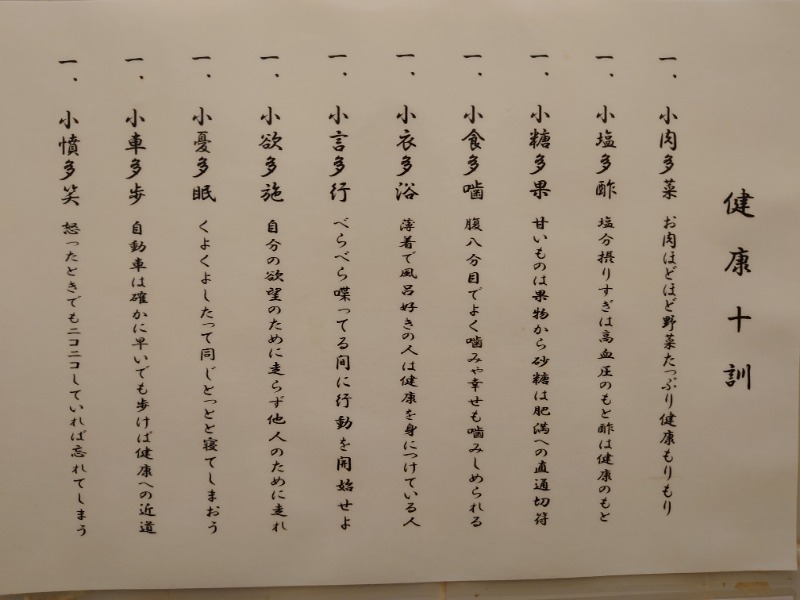 健康十訓
一、小肉多菜 お肉ほどほど野菜たっぷり健康もりもり
一、小塩多酢 塩分摂りすぎは高血圧のもと酢は健康のもと
一、小糖多果 甘いものは果物から砂糖は肥満への直通切符
一、小食多噛 腹八分目でよく噛みや幸せも噛みしめられる
一、小衣多浴 薄着で風呂好きの人は健康を身につけている人
一、小言多行 べらべら喋ってる间に行動を開始せよ
一、小欲多施 自分の欲望のために走らず他人のために走れ
一、小憂多眠 くよくよしたって同じとっとと寝てしまおう
一、小車多歩 自動車は確かに早いでも歩けば健康への近道
一、小憤多笑 怒ったときでもニコニコしていれば忘れてしまう